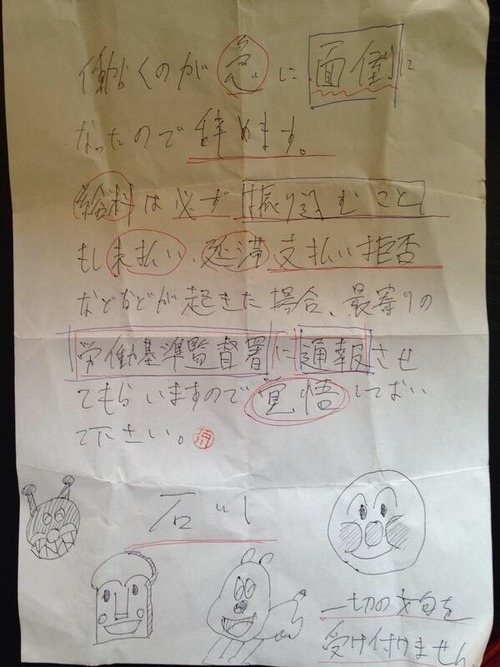 働くのが急に面倒に
なったので辞めます。
給料は必ず振り込むこと
もし未払い、延滞、支払い拒否
などなどが起きた場合、最寄りの
労働基準監督署に通報させ
てもらいますので覚悟しておい
て下さい。
一切の文句を
受け付けません